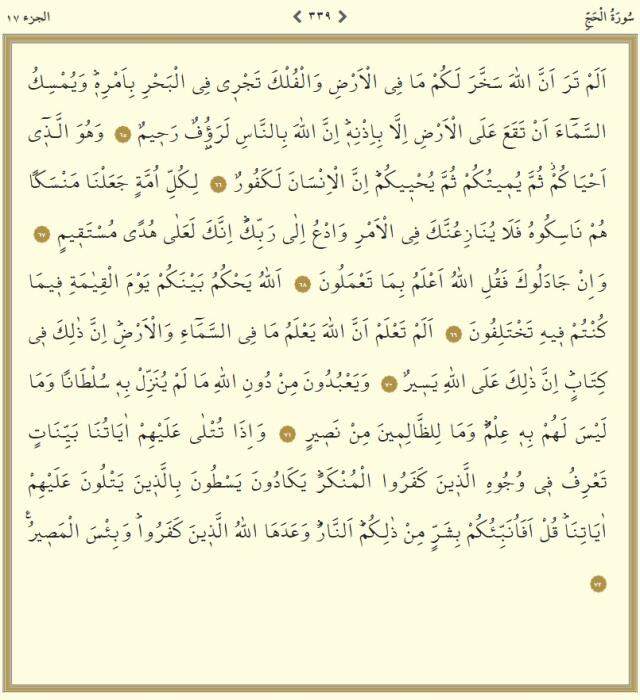 سُورَةُ الْحَجِّ ٣٣٩ الجزء ١٧
اَلَمْ تَرَ اَنَّ اللّٰهَ سَخَّرَ لَكُمْ مَا فِى الْاَرْضِ وَالْفُلْكَ تَجْرٖى فِى الْبَحْرِ بِاَمْرِهٖؕ وَيُمْسِكُ
السَّمَٓاءَ اَنْ تَقَعَ عَلَى الْاَرْضِ اِلَّا بِاِذْنِهٖؕ اِنَّ اللّٰهَ بِالنَّاسِ لَرَؤُ۫فٌ رَحٖيمٌ ٦٥ وَهُوَ الَّذٖٓى
اَحْيَاكُمْؗ ثُمَّ يُمٖيتُكُمْ ثُمَّ يُحْيٖيكُمْؕ اِنَّ الْاِنْسَانَ لَكَفُورٌ ٦٦ لِكُلِّ اُمَّةٍ جَعَلْنَا مَنْسَكًا
هُمْ نَاسِكُوهُ فَلَا يُنَازِعُنَّكَ فِى الْاَمْرِ وَادْعُ اِلٰى رَبِّكَؕ اِنَّكَ لَعَلٰى هُدًى مُسْتَقٖيمٍ ٦٧
وَاِنْ جَادَلُوكَ فَقُلِ اللّٰهُ اَعْلَمُ بِمَا تَعْمَلُونَ ٦٨ اَللّٰهُ يَحْكُمُ بَيْنَكُمْ يَوْمَ الْقِيٰمَةِ فٖيمَا
كُنْتُمْ فٖيهِ تَخْتَلِفُونَ ٦٩ اَلَمْ تَعْلَمْ اَنَّ اللّٰهَ يَعْلَمُ مَا فِى السَّمَٓاءِ وَالْاَرْضِؕ اِنَّ ذٰلِكَ فٖى
كِتَابٍؕ اِنَّ ذٰلِكَ عَلَى اللّٰهِ يَسٖيرٌ ٧٠ وَيَعْبُدُونَ مِنْ دُونِ اللّٰهِ مَا لَمْ يُنَزِّلْ بِهٖ سُلْطَانًا وَمَا
لَيْسَ لَهُمْ بِهٖ عِلْمٌؕ وَمَا لِلظَّالِمٖينَ مِنْ نَصٖيرٍ ٧١ وَاِذَا تُتْلٰى عَلَيْهِمْ اٰيَاتُنَا بَيِّنَاتٍ
تَعْرِفُ فٖى وُجُوهِ الَّذٖينَ كَفَرُوا الْمُنْكَرَؕ يَكَادُونَ يَسْطُونَ بِالَّذٖينَ يَتْلُونَ عَلَيْهِمْ
اٰيَاتِنَاؕ قُلْ اَفَاُنَبِّئُكُمْ بِشَرٍّ مِنْ ذٰلِكُمْؕ اَلنَّارُؕ وَعَدَهَا اللّٰهُ الَّذٖينَ كَفَرُواؕ وَبِئْسَ الْمَصٖيرُࣖ
٧٢